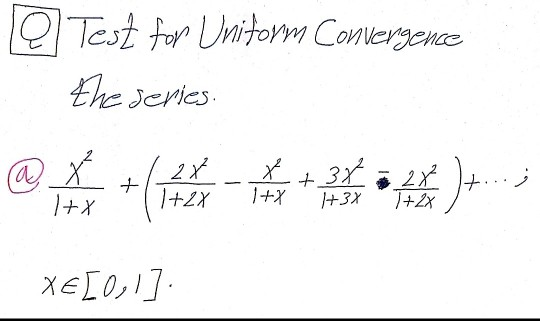 Q Test for Uniform Convergence
the series.
(a) x²/(1+x) + (2x²/(1+2x) - x²/(1+x) + 3x²/(1+3x) - 2x²/(1+2x)) + ... ;
x ∈ [0,1].